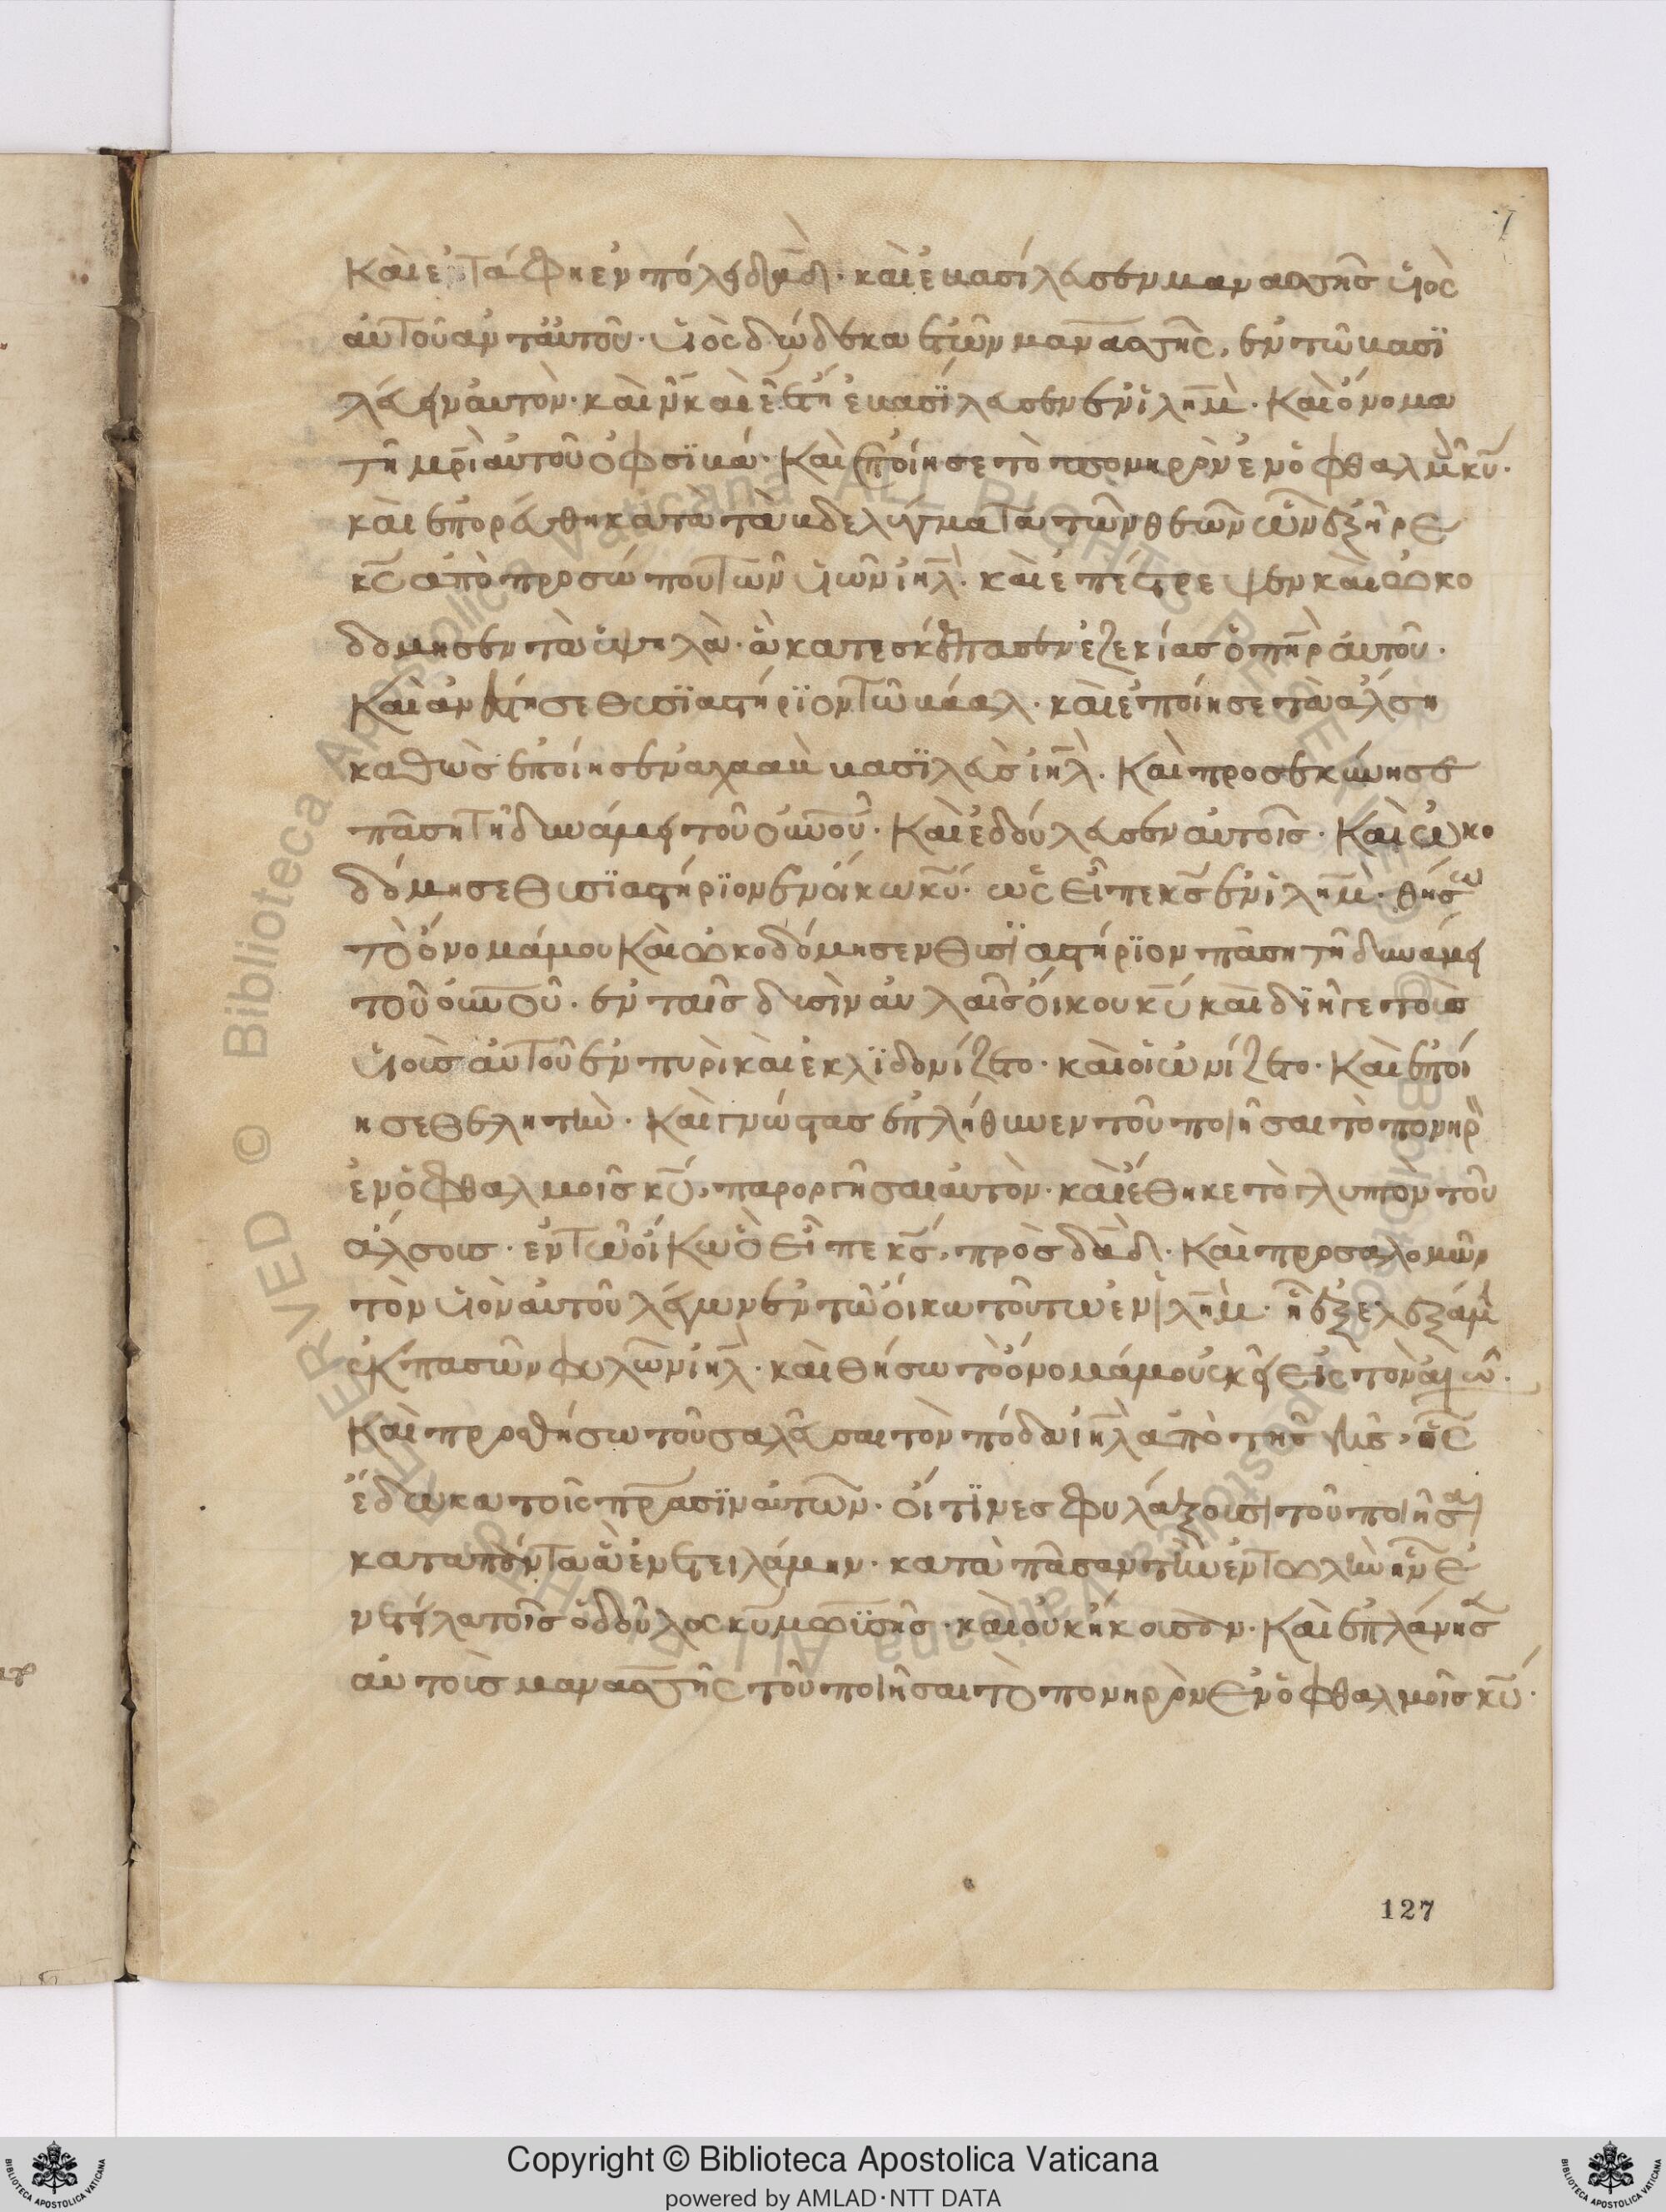 καὶ ἐτάφη ἐν πόλει δᾱδ· καὶ ἐβασίλευσεν μανασσῆς υἱὸς
αὐτοῦ ἀντ' αὐτοῦ· υἱὸς δώδεκα ἐτῶν μανασσῆς, ἐν τῶ βασϊ
λεύειν αὐτὸν· καὶ ν̄ καὶ ε̄ ἔτη ἐβασίλευσεν ἐν ἱλη̄μ· Καὶ ὄνομα
τῆ μρ̄ὶ αὐτοῦ ὀφσϊβά· Καὶ ἐποίησε τὸ πονηρὸν ἐν ὀφθαλμοῖς κῡ·
καὶ ἐπορεύθη κατὰ τὰ βδελύγματα τῶν ἐθνῶν ὧν ἐξῆρε
κ̄ς ἀπὸ προσώπου τῶν υἱῶν ἰη̄λ· καὶ ἐπέστρεψεν καὶ ὠκο
δόμησεν τὰ ὑψηλὰ· ἃ κατέσπασεν ἐζεκίας ὁ πη̄ρ αὐτοῦ·
Καὶ ἀνέστησε θυσϊαστήρϊον τῶ βάαλ· καὶ ἐποίησε τὰ ἄλση
καθὼς ἐποίησεν ἀχαὰβ βασϊλεὺς ἰη̄λ· Καὶ προσεκύνησε
πάση τῆ δυνάμει τοῦ οὐνοῦ· Καὶ ἐδούλευσεν αὐτοῖς· Καὶ ὠκο
δόμησε θυσϊαστήρϊον ἐν οἴκω κῡ· ὡς εἶπε κ̄ς ἐν ἱλη̄μ· θήσω
τὸ ὄνομά μου Καὶ ὠκοδόμησεν θυσϊαστήρϊον πάση τῆ δυνάμει
τοῦ οὐνοῦ· ἐν ταῖς δυσὶν αὐλαῖς οἴκου κῡ καὶ δϊῆγε τοὺς
υἱοὺς αὐτοῦ ἐν πυρὶ καὶ ἐκλϊδονίζετο· καὶ οἰωνίζετο· Καὶ ἐποί
ησε θελητὴν· Καὶ γνώστας ἐπλήθυνεν τοῦ ποιῆσαι τὸ πονηρὸν
ἐν ὀφθαλμοῖς κῡ, παροργῆσαι αὐτὸν· καὶ ἔθηκε τὸ γλυπτὸν τοῦ
ἄλσους· ἐν τῶ οἴκω ὃ εἶπε κ̄ς, πρὸς δᾱδ· Καὶ προς σαλομὼν
τὸν υἱὸν αὐτοῦ λέγων ἐν τῶ οἴκω τούτω ἐν ἱλη̄μ· ἧ ἐξελεξάμην
ἐκ πασῶν φυλῶν ἰη̄λ· καὶ θήσω τὸ ὄνομά μου ἐκεῖ εἰς τὸν αἰῶνα·
Καὶ προσθήσω τοῦ σαλεῦσαι τὸν πόδα ἰη̄λ ἀπὸ τῆς γῆς, ἧς
ἔδωκα τοῖς πρ̄ασϊν αὐτῶν· οἵτϊνες φυλάξουσι τοῦ ποιῆσαι
κατὰ πάντα ἃ ἐνετειλάμην· κατὰ πᾶσαν τὴν ἐντολὴν ἣν ἐ
νετείλατο αὐτοῖς ὁ δοῦλος κῡ μωϋσῆς· καὶ οὐκ ἤκουσαν· Καὶ ἐπλάνησεν
αὐτοὺς μανασσῆς τοῦ ποιῆσαι τὸ πονηρὸν ἐν ὀφθαλμοῖς κῡ·
127
Copyright © Biblioteca Apostolica Vaticana
powered by AMLAD·NTT DATA